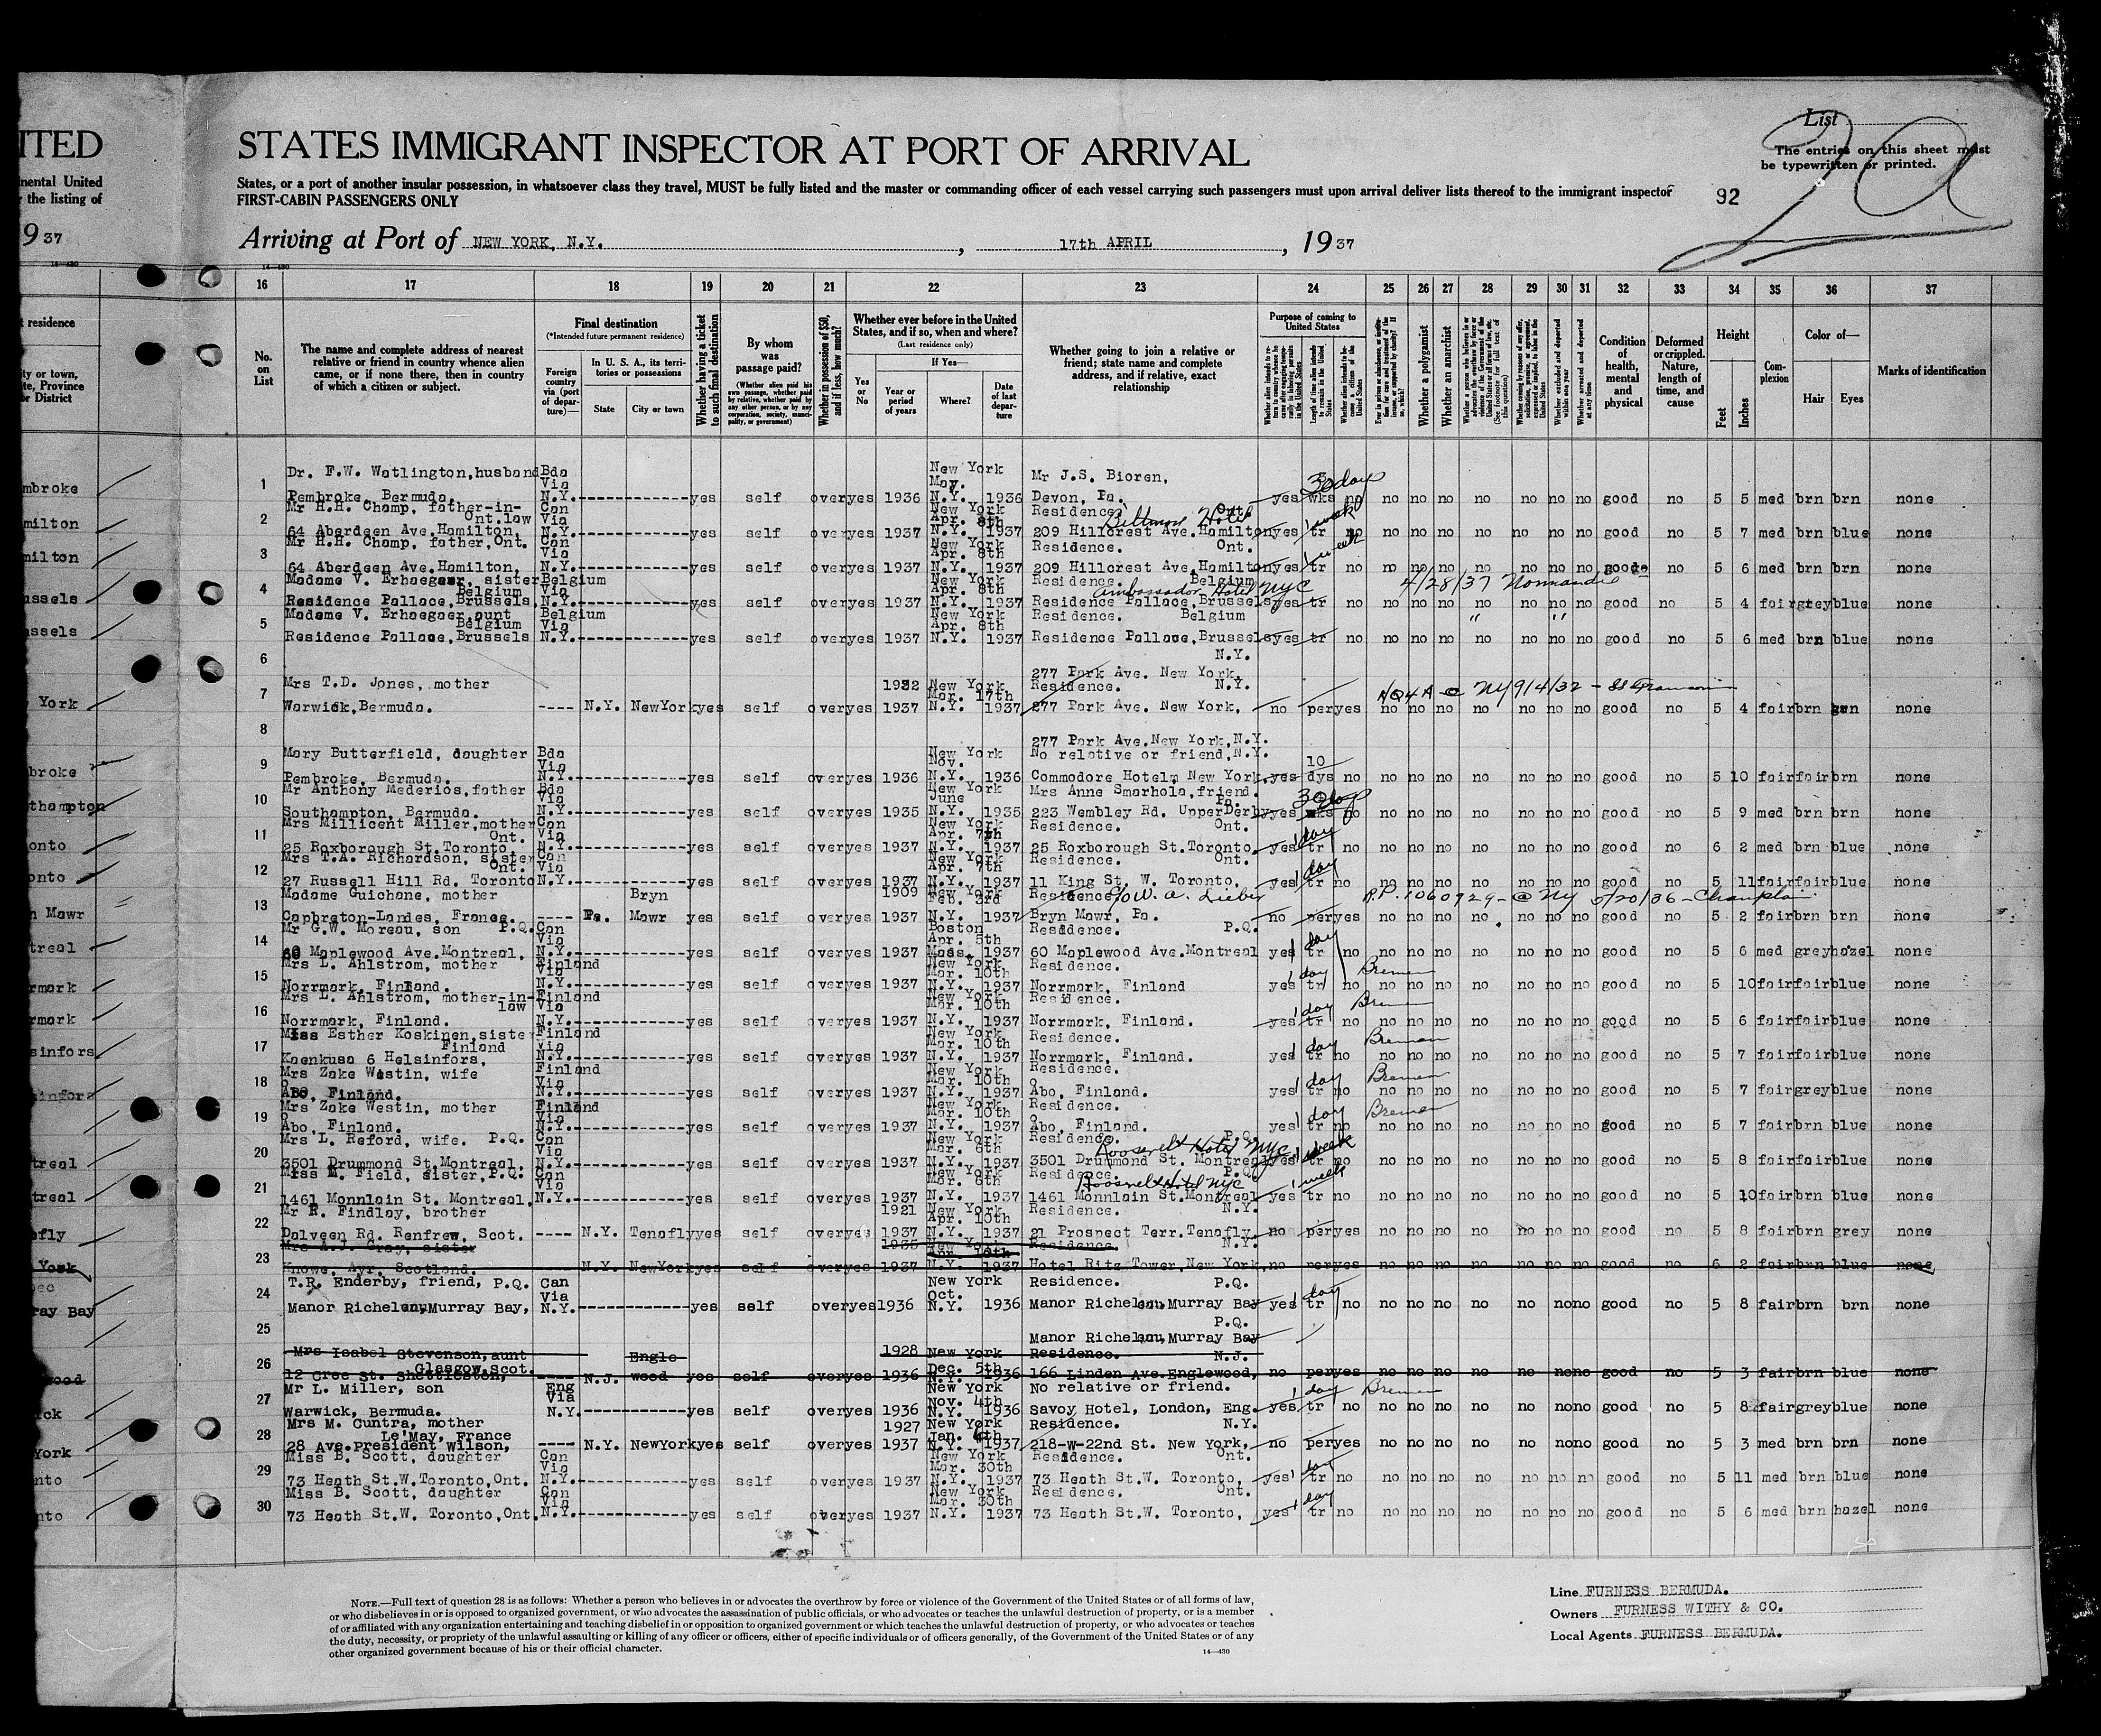 ITED
inental United
the listing of
9 37
14—430
t residence
ty or town,
te, Province
or District
mbroke
milton
milton
ussels
ussels
York
broke
thampton
onto
onto
n Mawr
treal
rmark
rmark
sinfors
sinfors
treal
treal
efly
York
bec
ray Bay
wood
ick
York
nto
nto
List
2A
The entries on this sheet must
be typewritten or printed.
92
STATES IMMIGRANT INSPECTOR AT PORT OF ARRIVAL
States, or a port of another insular possession, in whatsoever class they travel, MUST be fully listed and the master or commanding officer of each vessel carrying such passengers must upon arrival deliver lists thereof to the immigrant inspector
FIRST-CABIN PASSENGERS ONLY
Arriving at Port of NEW YORK, N.Y. , 17th APRIL , 19 37
14—430
16 17 18 19 20 21 22 23 24 25 26 27 28 29 30 31 32 33 34 35 36 37
No. on List
The name and complete address of nearest relative or friend in country whence alien came, or if none there, then in country of which a citizen or subject.
Final destination
(*Intended future permanent residence)
Foreign country via (port of departure)—
In U. S. A., its territories or possessions
State
City or town
Whether having a ticket to such final destination
By whom was passage paid?
(Whether alien paid his own passage, whether paid by relative, whether paid by any other person, or by any corporation, society, municipality, or government)
Whether in possession of $50, and if less, how much?
Whether ever before in the United States, and if so, when and where?
(Last residence only)
Yes or No
If Yes—
Year or period of years
Where?
Date of last departure
Whether going to join a relative or friend; state name and complete address, and if relative, exact relationship
Purpose of coming to United States
Whether a polygamist
Whether an anarchist
Condition of health, mental and physical
Deformed or crippled. Nature, length of time, and cause
Height
Feet
Inches
Complexion
Color of—
Hair
Eyes
Marks of identification
Dr. F.W. Watlington,husband Bda New York Mr J.S. Bioren, 30 days
1 Via Nov.
Pembroke, Bermuda. N.Y. yes self over yes 1936 N.Y. 1936 Devon, Pa. yes wks no no no no no no no no good no 5 5 med brn brn none
Mr H.H. Champ, father-in- Can New York Residence. Ont.
2 Ont.law Via Apr. 8th Biltmore Hotel 1 week
64 Aberdeen Ave.Hamilton, N.Y. yes self over yes 1937 N.Y. 1937 209 Hillcrest Ave.Hamilton yes tr no no no no no no no no good no 5 7 med brn blue none
Mr H.H. Champ, father,Ont. Can New York Residence. Ont.
3 Via Apr. 8th 1 week
64 Aberdeen Ave.Hamilton, N.Y. yes self over yes 1937 N.Y. 1937 209 Hillcrest Ave.Hamilton yes tr no no no no no no no no good no 5 6 med brn brn none
Madame V. Erhaegaer, sister Belgium New York Residence. Belgium
4 Belgium Via Apr. 8th Ambassador Hotel NYC 4/28/37 Normandie
Residence Pallace,Brussels, N.Y. yes self over yes 1937 N.Y. 1937 Residence Pallace,Brussels yes tr no no no no no no no no good no 5 4 fair grey blue none
Madame V. Erhaegaer,aunt Belgium New York Residence. Belgium
5 Belgium Via Apr. 8th " "
Residence Pallace,Brussels N.Y. yes self over yes 1937 N.Y. 1937 Residence Pallace,Brussels yes tr no no no no no no no no good no 5 6 med brn blue none
6 N.Y.
277 Park Ave. New York,
Mrs T.D. Jones, mother 1932 New York Residence. N.Y.
7 Mar. 17th NY 9/4/32
Warwick,Bermuda. ---- N.Y. NewYork yes self over yes 1937 N.Y. 1937 277 Park Ave. New York, no per yes no no no no no no no good no 5 4 fair brn none
8
277 Park Ave.New York,N.Y.
Mary Butterfield, daughter Bda New York No relative or friend,N.Y.
9 Via Nov. 10
Pembroke, Bermuda. N.Y. yes self over yes 1936 N.Y. 1936 Commodore Hotelm New York. yes dys no no no no no no no no good no 5 10 fair fair brn none
Mr Anthony Mederios,father Bda New York Mrs Anne Smarhola,friend.
10 Via June Pa. 30 days
Southampton, Bermuda. N.Y. yes self over yes 1935 N.Y. 1935 223 Wembley Rd. UpperDerby yes wks no no no no no no no no good no 5 9 med brn brn none
Mrs Millicent Miller,mother Can New York Residence. Ont.
11 Ont. Via Apr. 7th 1 day
25 Roxborough St.Toronto, N.Y. yes self over yes 1937 N.Y. 1937 25 Roxborough St.Toronto. yes tr no no no no no no no no good no 6 2 med brn blue none
Mrs T.A. Richardson, sister Can New York Residence. Ont.
12 Ont. Via Apr. 7th 1 day
27 Russell Hill Rd. Toronto N.Y. yes self over yes 1937 N.Y. 1937 11 King St. W. Toronto, yes tr no no no no no no no no good no 5 11 fair fair blue none
Madame Guichane, mother Bryn 1909 New York Residence c/o W. A. Lieber R.P. 1060929 - @ NY 5/20/36 - Champlain
13 Feb. 3rd
Capbreton-Landes, France. ---- Pa. Mawr yes self over yes 1937 N.Y. 1937 Bryn Mawr, Pa. no per yes no no no no no no no good no 5 2 fair brn brn none
Mr G.W. Moreau, son P.Q. Can Boston Residence. P.Q.
14 Via Apr. 5th 1 day
60 Maplewood Ave.Montreal, N.Y. yes self over yes 1937 Mass. 1937 60 Maplewood Ave.Montreal yes tr no no no no no no no no good no 5 6 med grey hazel none
Mrs L. Ahlstrom, mother Finland New York Residence.
15 Via Mar. 10th 1 day Bremen
Norrmark, Finland. N.Y. yes self over yes 1937 N.Y. 1937 Norrmark, Finland yes tr no no no no no no no no good no 5 10 fair fair blue none
Mrs L. Ahlstrom, mother-in- Finland New York Residence.
16 law Via Mar. 10th 1 day Bremen
Norrmark, Finland. N.Y. yes self over yes 1937 N.Y. 1937 Norrmark, Finland. yes tr no no no no no no no no good no 5 6 fair fair blue none
Miss Esther Koskinen,sister Finland New York Residence.
17 Finland Via Mar. 10th 1 day Bremen
Kaenkuso 6 Helsinfors, N.Y. yes self over yes 1937 N.Y. 1937 Norrmark, Finland. yes tr no no no no no no no no good no 5 7 fair fair blue none
Mrs Zake Westin, wife Finland New York Residence.
18 Via Mar. 10th 1 day Bremen
Åbo, Finland. N.Y. yes self over yes 1937 N.Y. 1937 Åbo, Finland. yes tr no no no no no no no no good no 5 7 fair grey blue none
Mrs Zake Westin, mother Finland New York Residence.
19 Via Mar. 10th 1 day Bremen
Åbo, Finland. N.Y. yes self over yes 1937 N.Y. 1937 Åbo, Finland. yes tr no no no no no no no no good no 5 7 fair brn blue none
Mrs L. Reford, wife. P.Q. Can New York Residence. P.Q.
20 Via Mar. 6th Roosevelt Hotel NYC 1 week
3501 Drummond St.Montreal, N.Y. yes self over yes 1937 N.Y. 1937 3501 Drummond St. Montreal yes tr no no no no no no no no good no 5 8 fair fair blue none
Miss M. Field, sister,P.Q. Can New York Residence. P.Q.
21 Via Mar. 6th Roosevelt Hotel NYC 1 week
1461 Monnlain St. Montreal, N.Y. yes self over yes 1937 N.Y. 1937 1461 Monnlain St.Montreal yes tr no no no no no no no no good no 5 10 fair brn blue none
Mr R. Findlay, brother 1921 New York Residence. N.Y.
22 Apr. 10th
Dalveen Rd. Renfrew, Scot. ---- N.Y. Tenafly yes self over yes 1937 N.Y. 1937 21 Prospect Terr.Tenafly. no per yes no no no no no no no good no 5 8 fair brn grey none
Mrs A.J. Gray, sister 1935 New York Residence. N.Y.
23 Apr 10th
Knowe, Ayr, Scotland. N.Y. NewYork yes self over yes 1937 N.Y. 1937 Hotel Ritz Tower,New York, no per yes no no no no no no no good no 6 2 fair brn blue none
T.R. Enderby, friend, P.Q. Can New York Residence. P.Q.
24 Via Oct. 1 day
Manor Richelau,Murray Bay, N.Y. yes self over yes 1936 N.Y. 1936 Manor Richelau,Murray Bay yes tr no no no no no no no no good no 5 8 fair brn brn none
25 P.Q.
Manor Richelau,Murray Bay
Mrs Isabel Stevenson,aunt Engle- 1928 New York Residence. N.J.
26 Glasgow,scot. Dec. 5th
12 Cree St. Shettleston, ---- N.J. wood yes self over yes 1936 N.Y. 1936 166 Linden Ave.Englewood, no per yes no no no no no no no good no 5 3 fair brn blue none
Mr L. Miller, son Eng New York No relative or friend.
27 Via Nov. 4th 1 day Bremen
Warwick, Bermuda. N.Y. yes self over yes 1936 N.Y. 1936 Savoy Hotel, London, Eng. yes tr no no no no no no no no good no 5 8 fair grey blue none
Mrs M. Cuntra, mother 1927 New York Residence. N.Y.
28 Le'May, France Jan. 6th
28 Ave.President Wilson, ---- N.Y. NewYork yes self over yes 1937 N.Y. 1937 218-W-22nd St. New York, no per yes no no no no no no no good no 5 3 med brn brn none
Miss B. Scott, daughter Can New York Residence. Ont.
29 Via Mar. 30th 1 day
73 Heath St.W.Toronto,Ont. N.Y. yes self over yes 1937 N.Y. 1937 73 Heath St.W. Toronto, yes tr no no no no no no no no good no 5 11 med brn blue none
Miss B. Scott, daughter Can New York Residence. Ont.
30 Via Mar. 30th 1 day
73 Heath St.W. Toronto,Ont. N.Y. yes self over yes 1937 N.Y. 1937 73 Heath St.W. Toronto, yes tr no no no no no no no no good no 5 6 med brn hazel none
NOTE.—Full text of question 28 is as follows: Whether a person who believes in or advocates the overthrow by force or violence of the Government of the United States or of all forms of law,
or who disbelieves in or is opposed to organized government, or who advocates the assassination of public officials, or who advocates or teaches the unlawful destruction of property, or is a member
of or affiliated with any organization entertaining and teaching disbelief in or opposition to organized government or which teaches the unlawful destruction of property, or who advocates or teaches
the duty, necessity, or propriety of the unlawful assaulting or killing of any officer or officers, either of specific individuals or of officers generally, of the Government of the United States or of any
other organized government because of his or their official character.
14—430
Line FURNESS BERMUDA.
Owners FURNESS WITHY & CO.
Local Agents FURNESS BERMUDA.